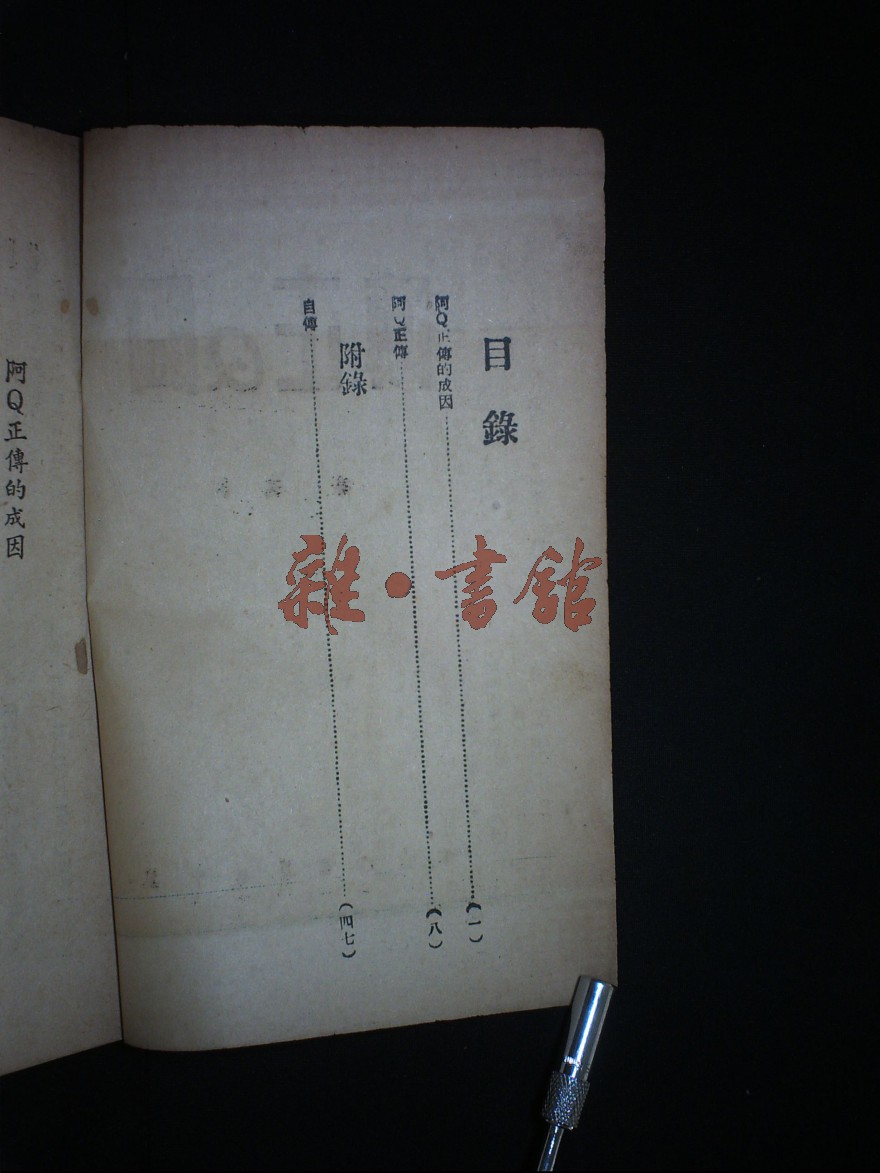 目錄
阿Q正傳的成因(一)
阿Q正傳(八)
附錄
自傳(四七)
阿Q正傳的成因
雜·書館